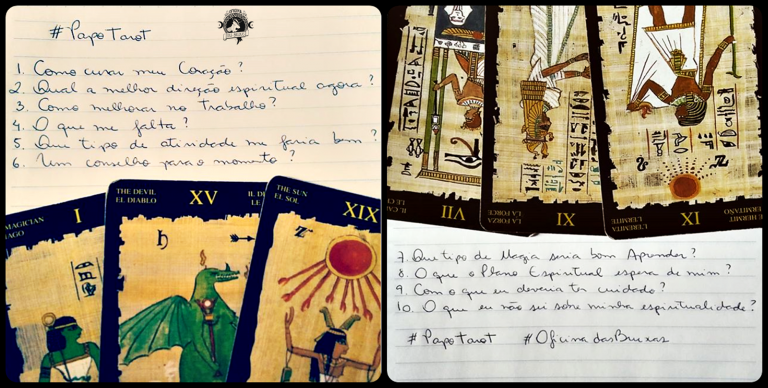 #PapoTarot
1. Como curar meu Coração?
2. Qual a melhor direção espiritual agora?
3. Como melhorar no trabalho?
4. O que me falta?
5. Que tipo de atividade me faria bem?
6. Um conselho para o momento?
MAGICIAN
I
THE DEVIL
EL DIABLO
XV
THE SUN
EL SOL
XIX
VII
LA FORCE
XI
LA FORZA
L'EREMITA
L'ERMITE
IX
7. Que tipo de Magia seria bom Aprender?
8. O que o Plano Espiritual espera de mim?
9. Com o que eu deveria ter cuidado?
10. O que eu não sei sobre minha espiritualidade?
#PapoTarot #OficinadasBruxas